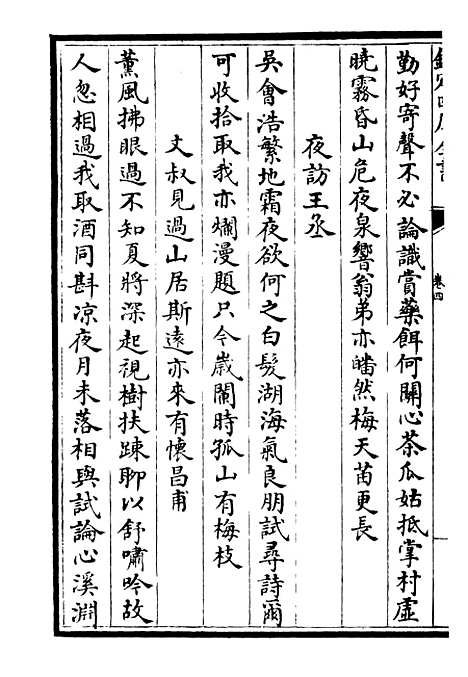 欽定四庫全書
卷四
勤好寄聲不必論識賞藥餌何關心茶瓜姑抵掌村虛
曉霧昏山危夜泉響翁弟亦皤然梅天苗更長
夜訪王丞
吳會浩繁地霜夜欲何之白髮湖海氣良朋試尋詩爾
可收拾取我亦爛漫題只今歲鬧時孤山有梅枝
文叔見過山居斯遠亦來有懷昌甫
薰風拂眼過不知夏將深起視樹扶疎聊以舒嘯吟故
人忽相過我取酒同斟凉夜月未落相與試論心溪淵